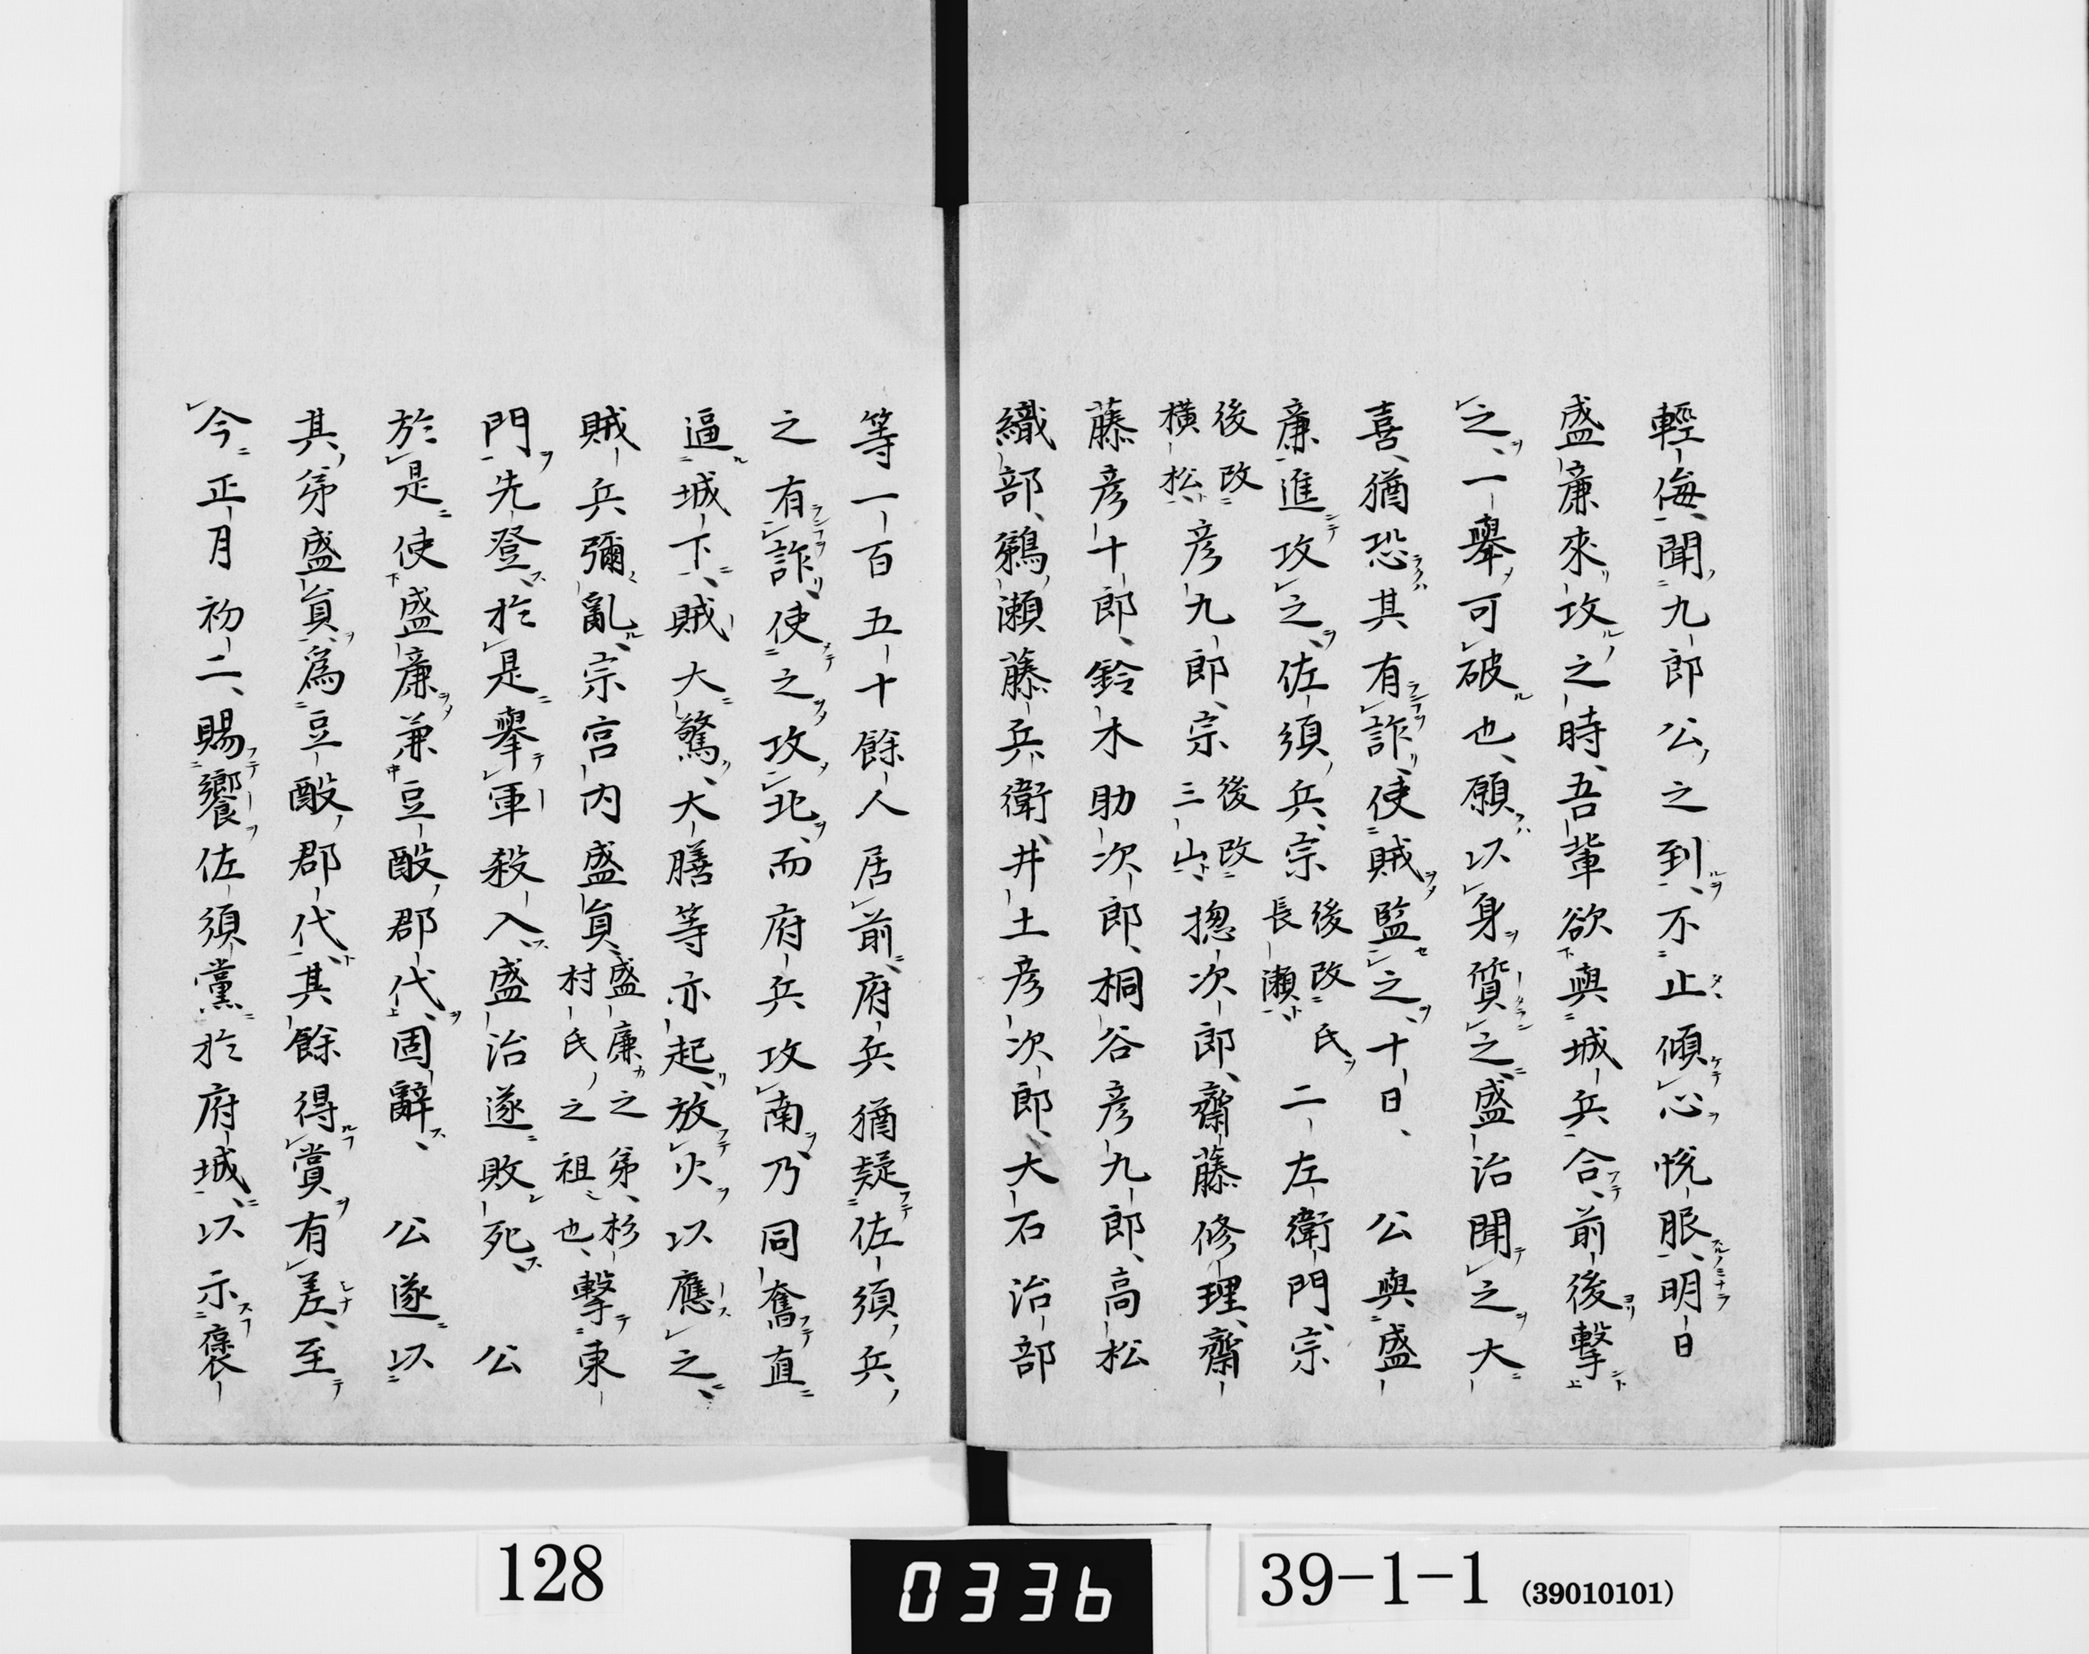 輕侮、聞九郎公之到、不止傾心悅服、明日
盛廉來攻之時、吾輩欲與城兵合、前後擊
之、一擧可破也、願以身質之、盛治聞之大
喜、猶恐其有詐、使賊監之、十日、　公與盛
廉進攻之、佐須兵、宗後改長瀨氏二左衛門、宗
後改橫松彦九郎、宗後改三山摠次郎、齋藤修理、齋
藤彦十郎、鈴木助次郎、桐谷彦九郎、高松
織部、鵜瀨藤兵衛、井土彦次郎、大石治部
等一百五十餘人居前、府兵猶疑佐須兵
之有詐、使之攻北、而府兵攻南、乃同奮直
逼城下、賊大驚、大膳等亦起、放火以應之、
賊兵彌亂、宗宮内盛貟、盛廉之弟、杉村氏之祖也、擊東
門先登、於是擧軍殺入、盛治遂敗死、　公
於是使盛廉兼豆酘郡代、固辭、　公遂以
其弟盛貟、爲豆酘郡代、其餘得賞有差、至
今正月初二、賜饗佐須黨於府城、以示褒
128
0336
39-1-1 (39010101)